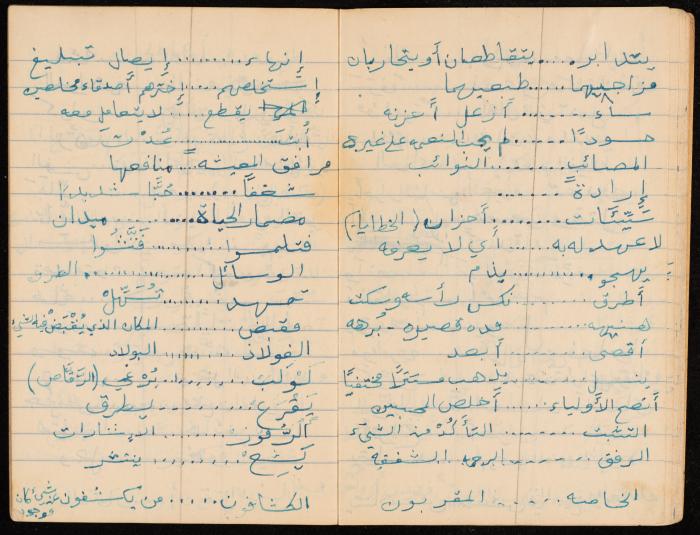 يتدابر ..... يتقاطعان أو يتحاربان
مزاجيهما ...... طبعيهما
ساء ....... أزعل أحزنه
حسودًا ....... لم يحب النعمه على غيره
المصائب ....... النوائب
إرادةً ......
سَيِّئَات ....... أحزان (الخطايا)
لا عهد له به ..... أي لا يعرفه
يهجو ........ يذم
أطرق ....... نكس رأسه وسكت
هنيهه ....... مده قصيره - بُرهه
أقصى ....... أبعد
ينسل ....... يذهب مستترًا مختفيًا
أنصح الأولياء ..... أخلص المحبين
التثبت ....... التأكُدْ من الشيء
الرفق ....... الرحمه الشفقه
الخاصه ....... المقربون
إنهاء ......... إيصال تبليغ
إستخلصهم ..... إخترهم أصدقاء مخلصين
يقطع .... لا يتعامل معه
أُبْتَ ............. عُدْتَ
مرافق المعيشه ... منافعها
شغفاً ........ حُبًّا شديدًا
مضمار الحياة ........ ميدان
فتلمسوا ........ فَتِّشُوا
الوسائل ........ الطرق
تمهد ........ تُسَهِّلْ
مقبض ........ المكان الذي يُقْبَضْ فيه الشيء
الفولاذ ........ البولاد
لَوْلَبَ ........ بُرْغي (الرَّقَّاص)
يَقْرَعُ ........ يطرق
الرُّموز ........ الإشارات
يَشِحْ ........ ينتشر
الكشافون ..... من يكشفون عن شيء كان موجود